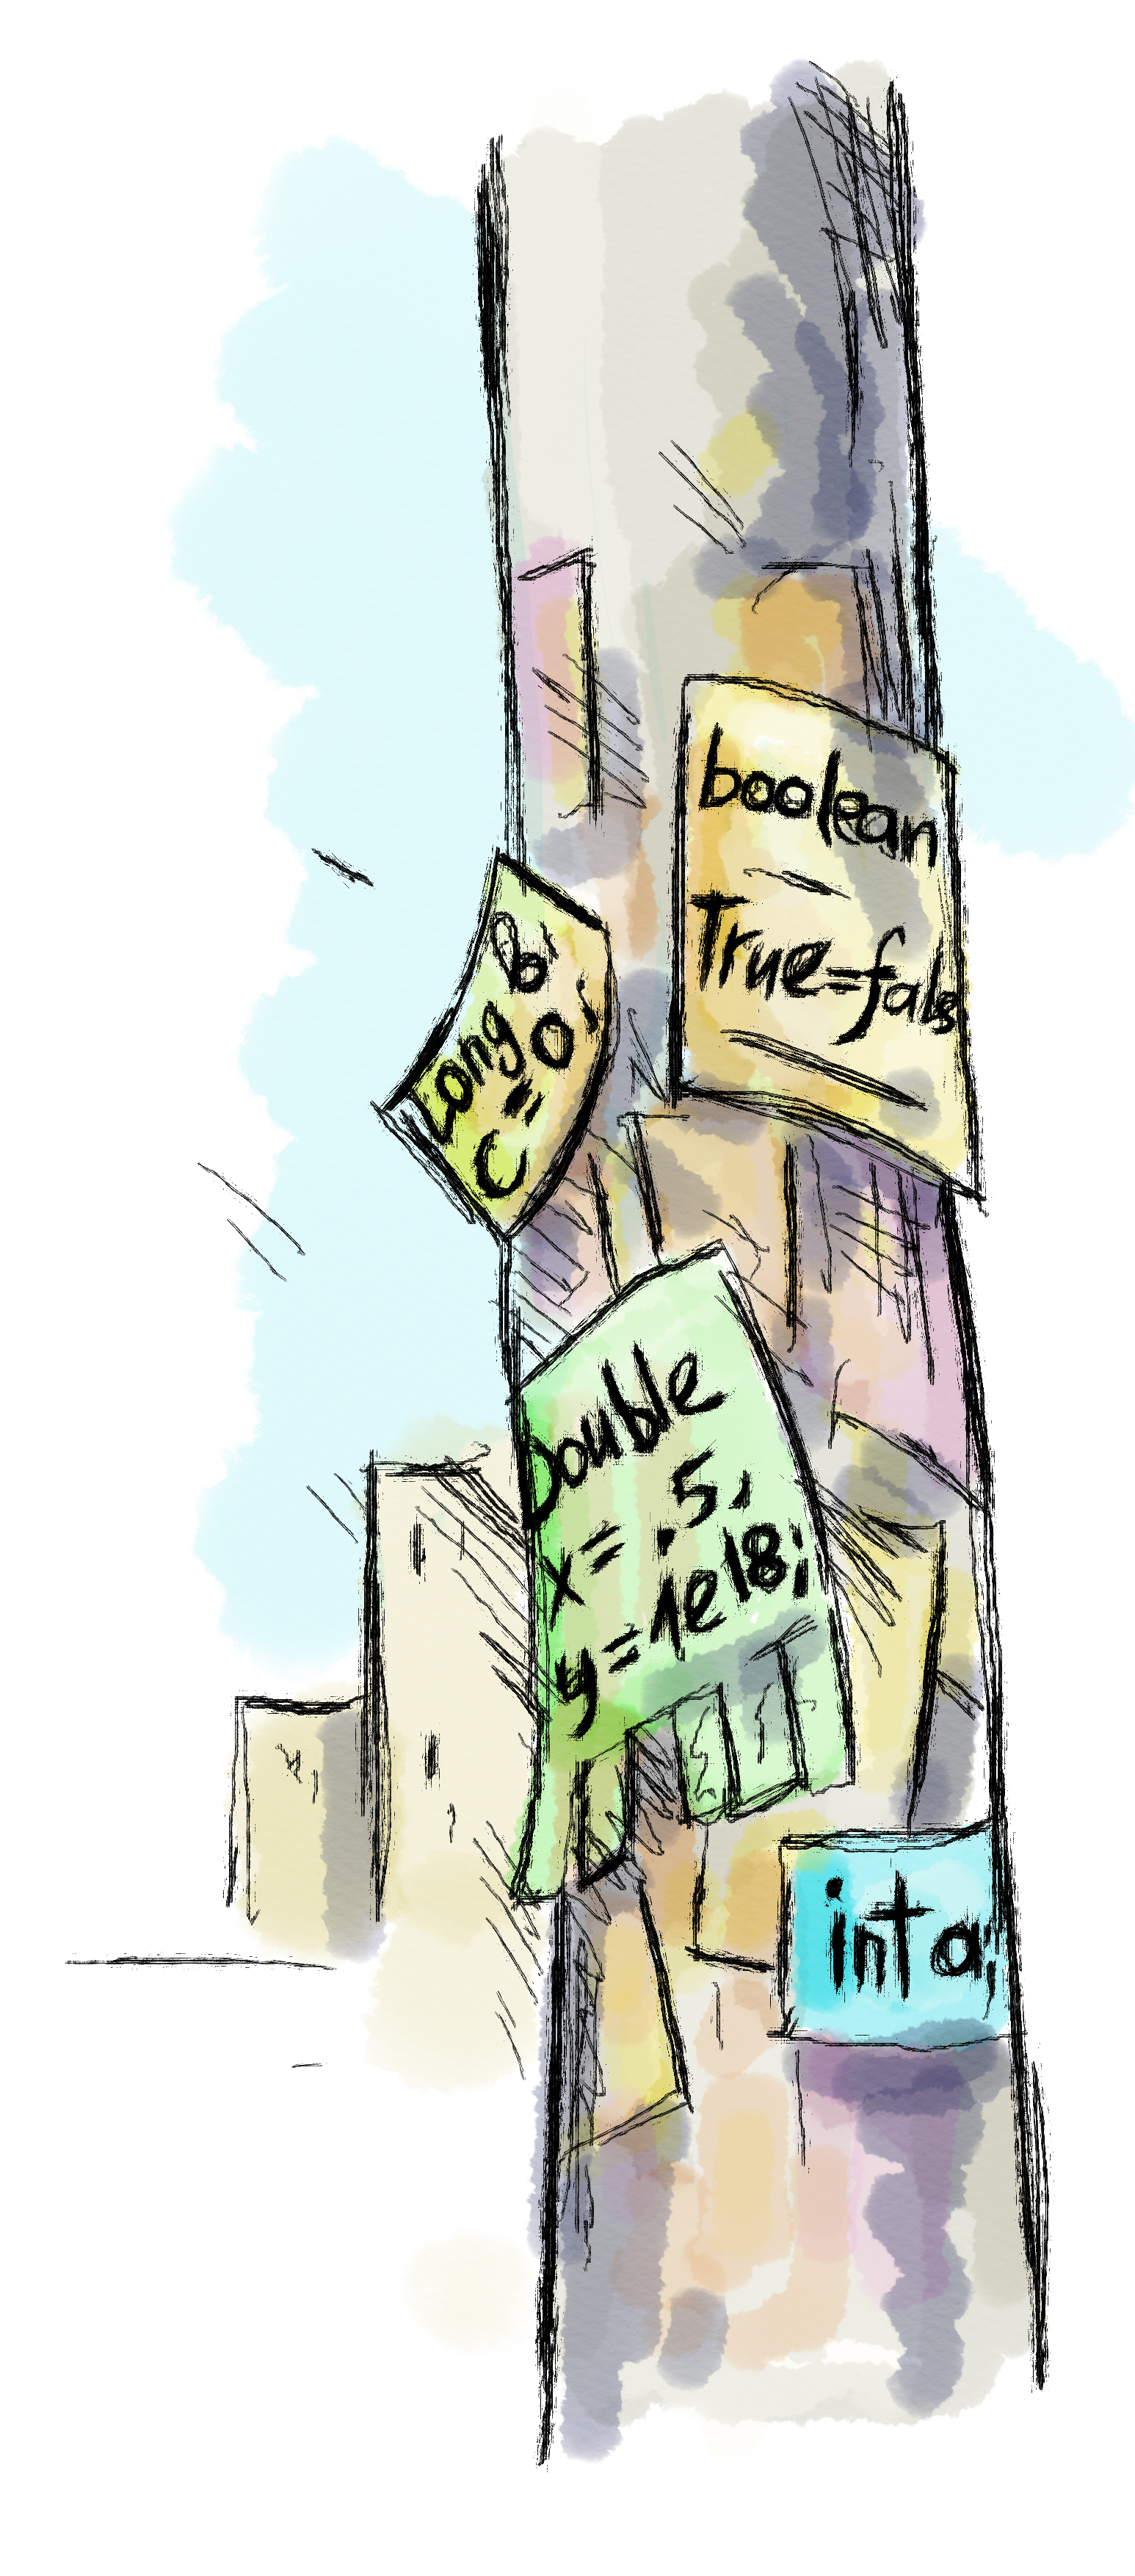 boolean
True=fals
Long b;
c = 0;
Double
x = .5,
y = 1e18;
int a;